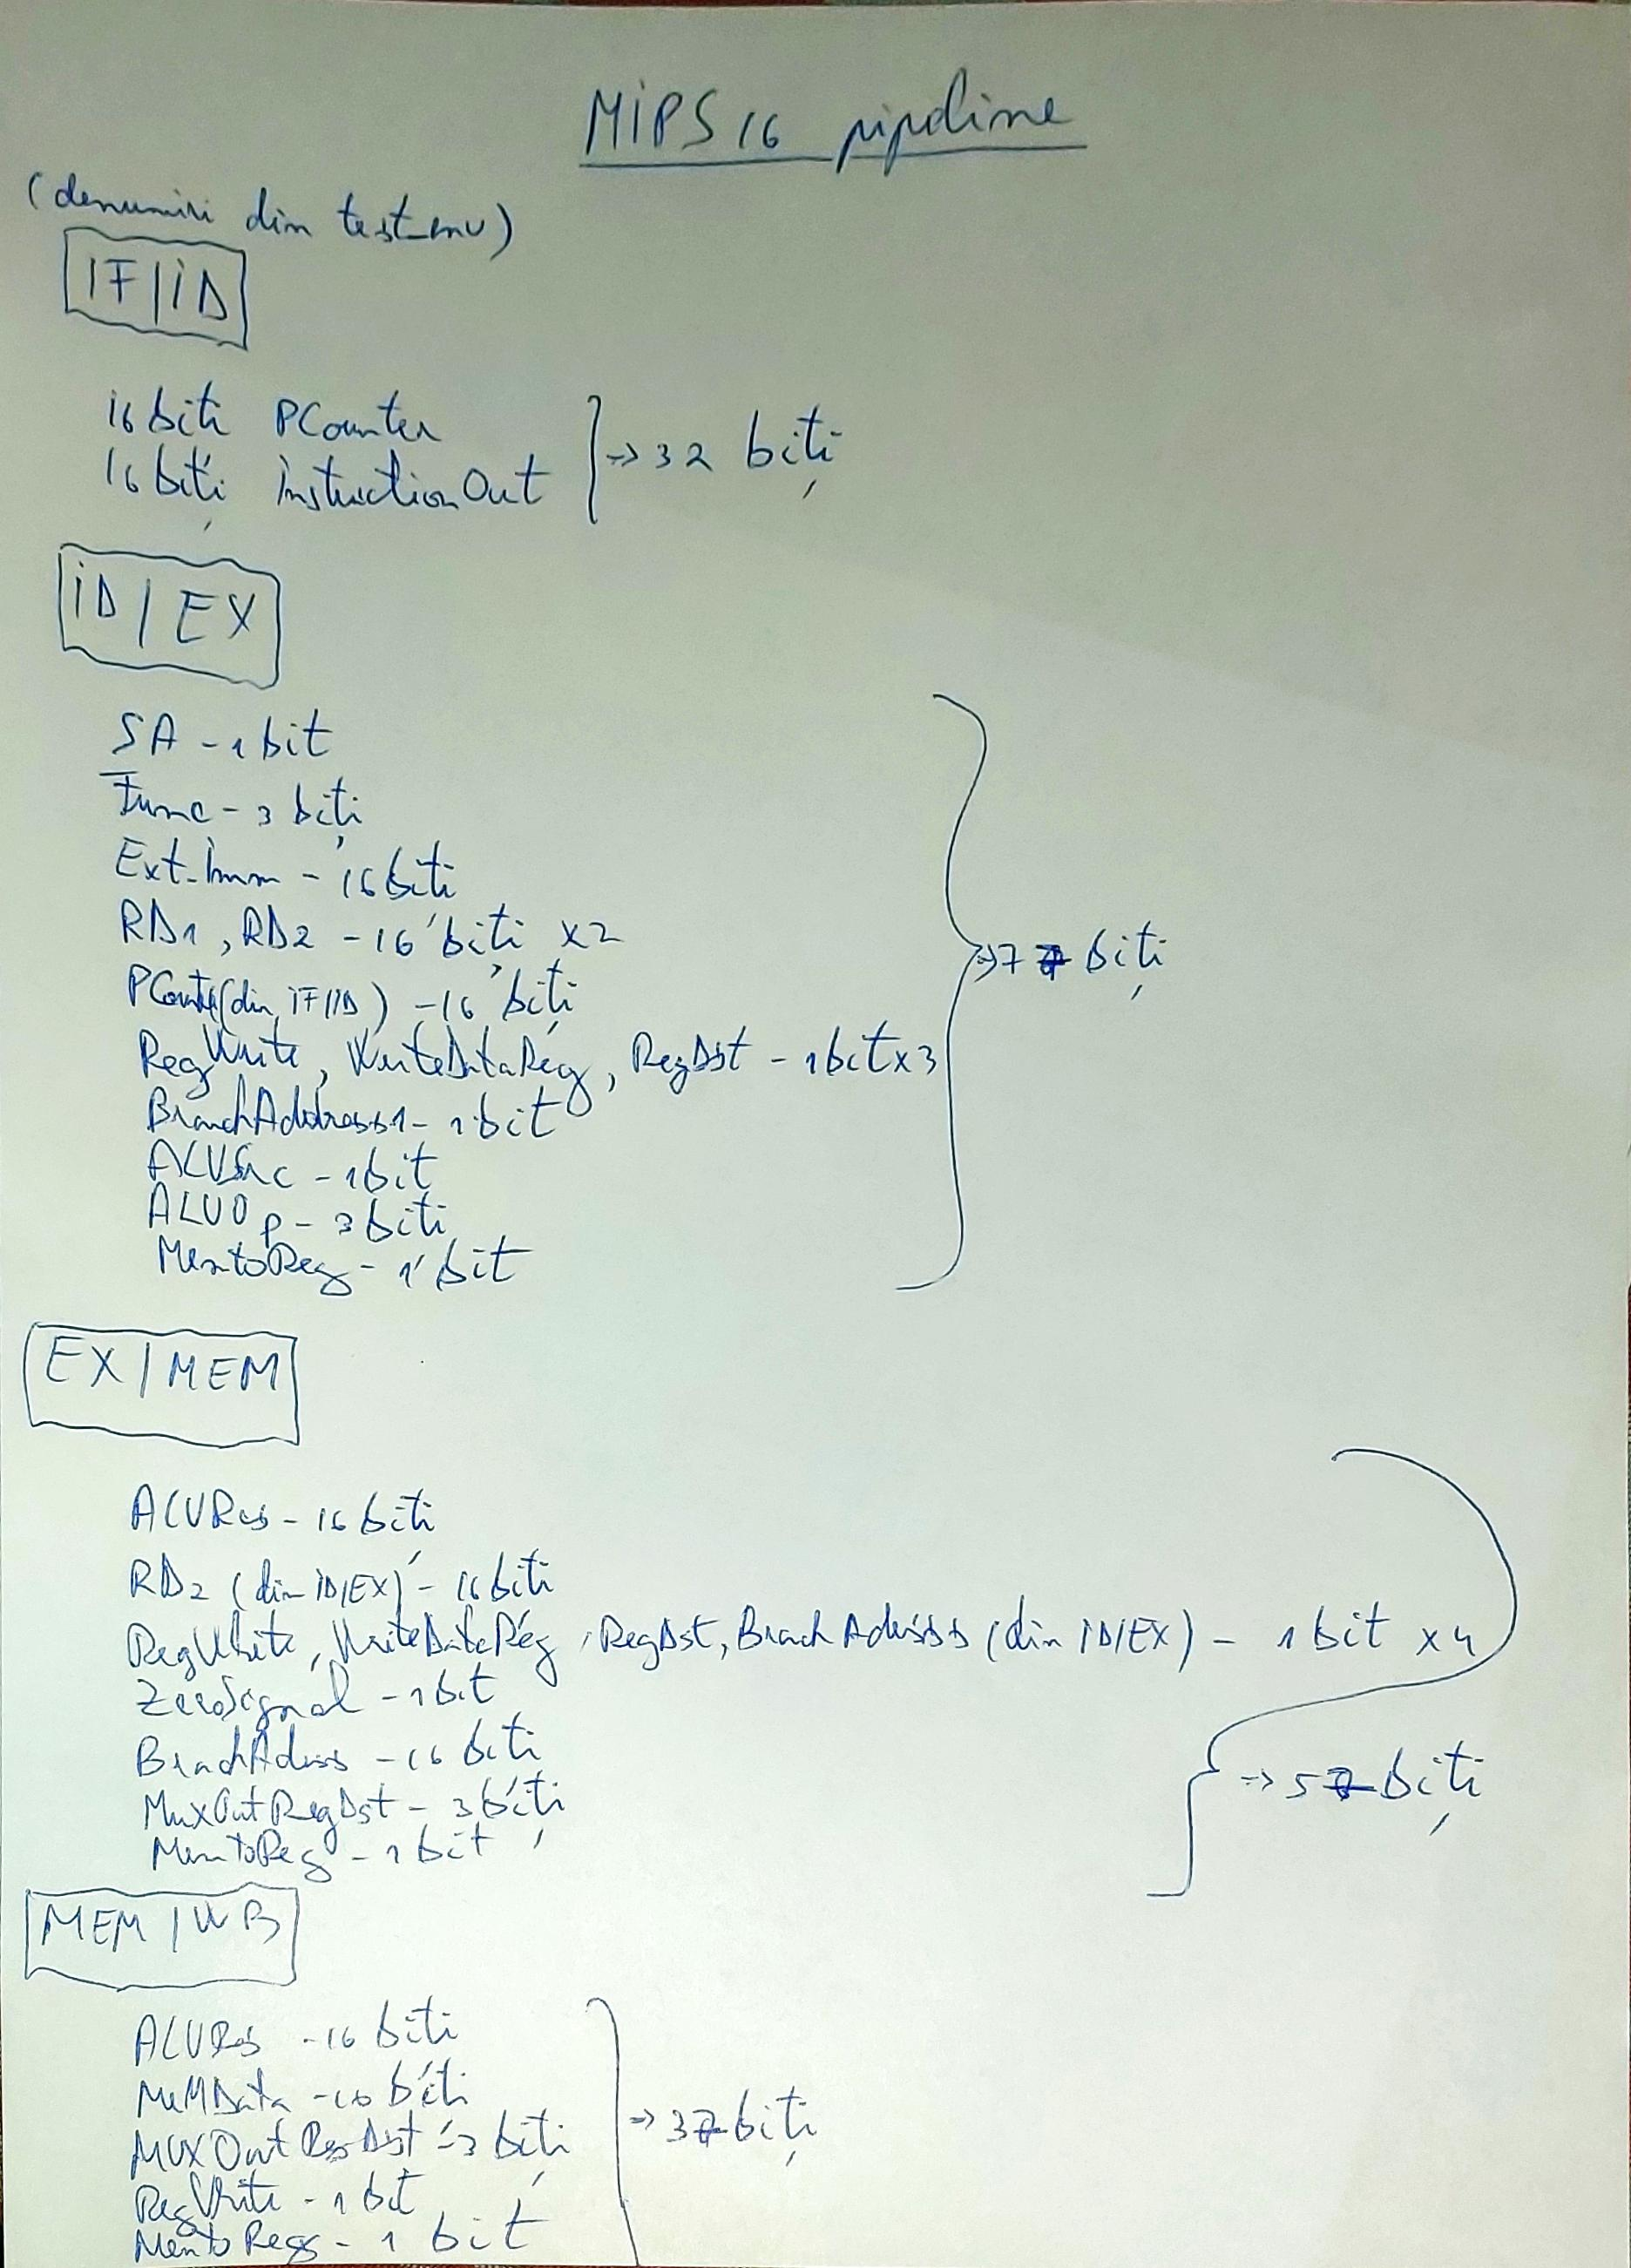 MIPS 16 pipeline
(denumiri din test_env)
IF/ID
16 biti PCounter
16 biți InstructionOut
=> 32 biți
ID/EX
SA - 1 bit
Func - 3 biți
Ext_Imm - 16 biti
RD1, RD2 - 16 biți x2
(din IF/ID) - 16 biți
RegWrite, WriteDataReg, RegDst - 1bit x3
BranchAddress1 - 1 bit
ALUSrc - 1bit
ALUOp - 3 biti
MemtoReg - 1 bit
=> 77 biți
EX/MEM
ALURes - 16 biți
RD2 (din ID/EX) - 16 biti
RegWrite, WriteDataReg, RegDst, (din ID/EX) - 1 bit x4
ZeroSignal - 1 bit
- 16 biti
MuxOutRegDst - 3 biți
MemtoReg - 1 bit
=> 57 biți
MEM/WB
ALURes - 16 biti
MeMData - 16 biti
MUXOutRegDst - 3 biți
RegWrite - 1 bit
- 1 bit
=> 37 biți